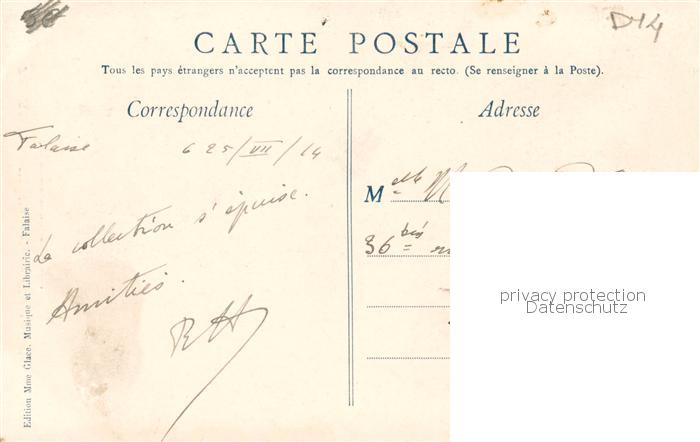 D14
CARTE POSTALE
Tous les pays étrangers n'acceptent pas la correspondance au recto. (Se renseigner à la Poste).
Correspondance
Adresse
Falaise 6 25/VII/14
La collection s'épuise.
Amitiés.
RH
Melle M
36 bis
privacy protection
Datenschutz
Edition Mme Glace. Musique et Librairie. - Falaise